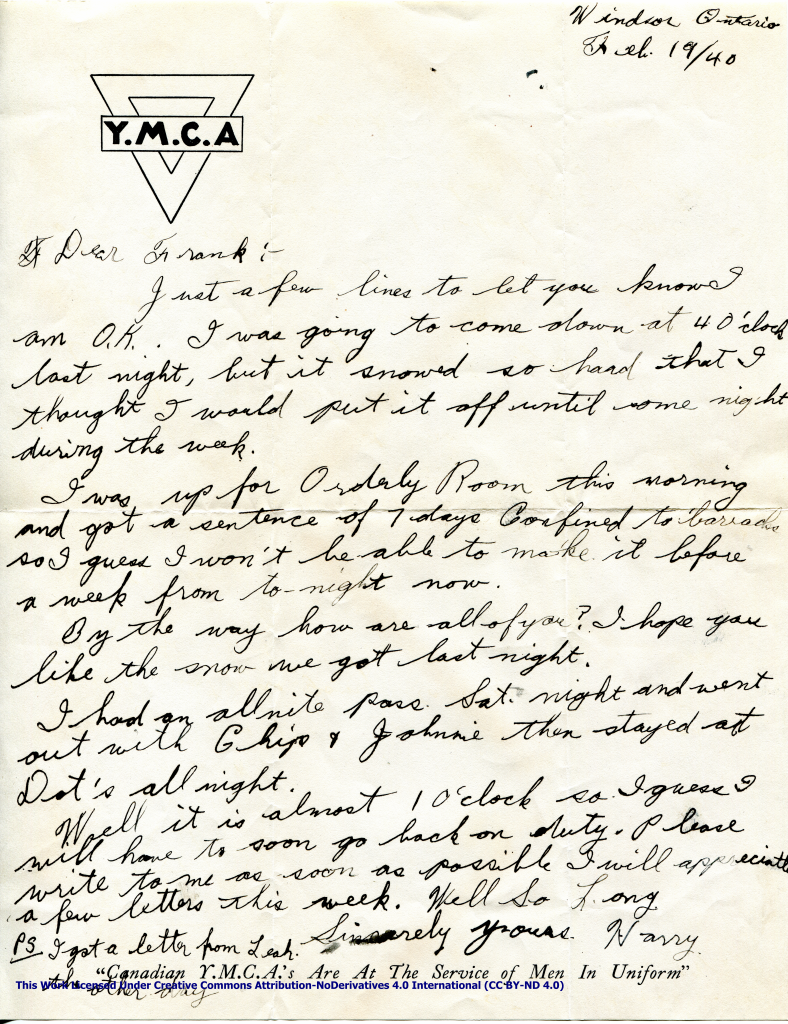 Windsor Ontario
Feb. 19/40
Y.M.C.A
Dear Frank :-
Just a few lines to let you know I
am O.K. . I was going to come down at 4 O'clock
last night, but it snowed so hard that I
thought I would put it off until some night
during the week.
I was up for Orderly Room this morning
and got a sentence of 7 days Confined to barracks
so I guess I won't be able to make it before
a week from to-night now.
By the way how are all of you? I hope you
like the snow we got last night.
I had an allnite pass Sat. night and went
out with Chips & Johnnie then stayed at
Dot's all night.
Well it is almost 1 O'clock so I guess I
will have to soon go back on duty. Please
write to me as soon as possible I will appreciate
a few letters this week. Well So Long
Sincerely yours Harry
PS I got a letter from Leah
the other day
"Canadian Y.M.C.A.'s Are At The Service of Men In Uniform"
This Work Licensed Under Creative Commons Attribution-NoDerivatives 4.0 International (CC BY-ND 4.0)